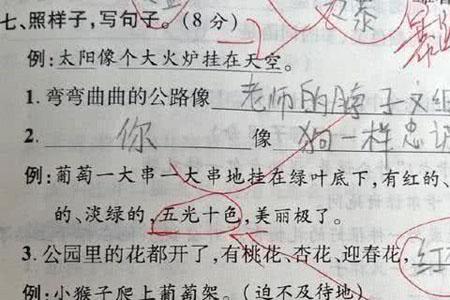 七、照样子,写句子。(8分)
例:太阳像个大火炉挂在天空。
1. 弯弯曲曲的公路像 老师的脖子又细
2. 你 像 狗一样忠诚
例:葡萄一大串一大串地挂在绿叶底下,有红的、
的、淡绿的,五光十色,美丽极了。
3. 公园里的花都开了,有桃花、杏花、迎春花, 红
例:小猴子爬上葡萄架。(迫不及待地)